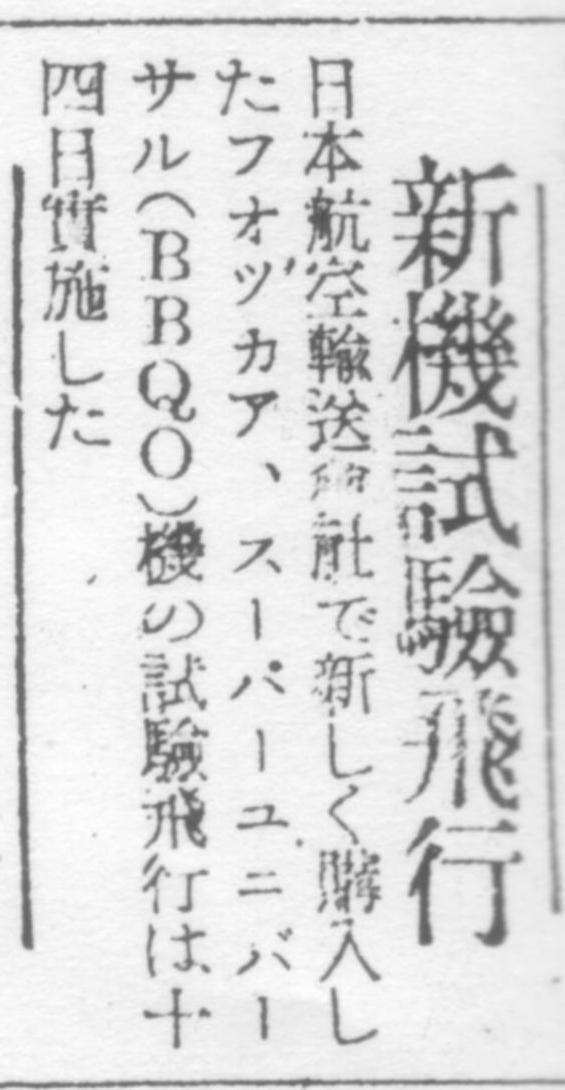 新機試驗飛行
日本航空輸送會社で新しく購入し
たフオツカア、スーパーユニバー
サル（BBQO）機の試驗飛行は十
四日實施した